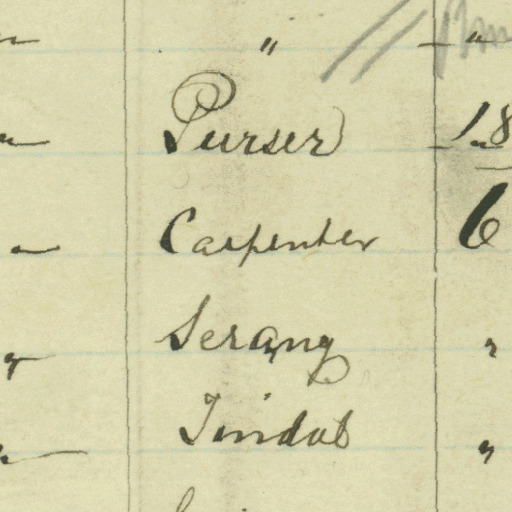 "
Purser 18
Carpenter 6
Serang "
Tindal "